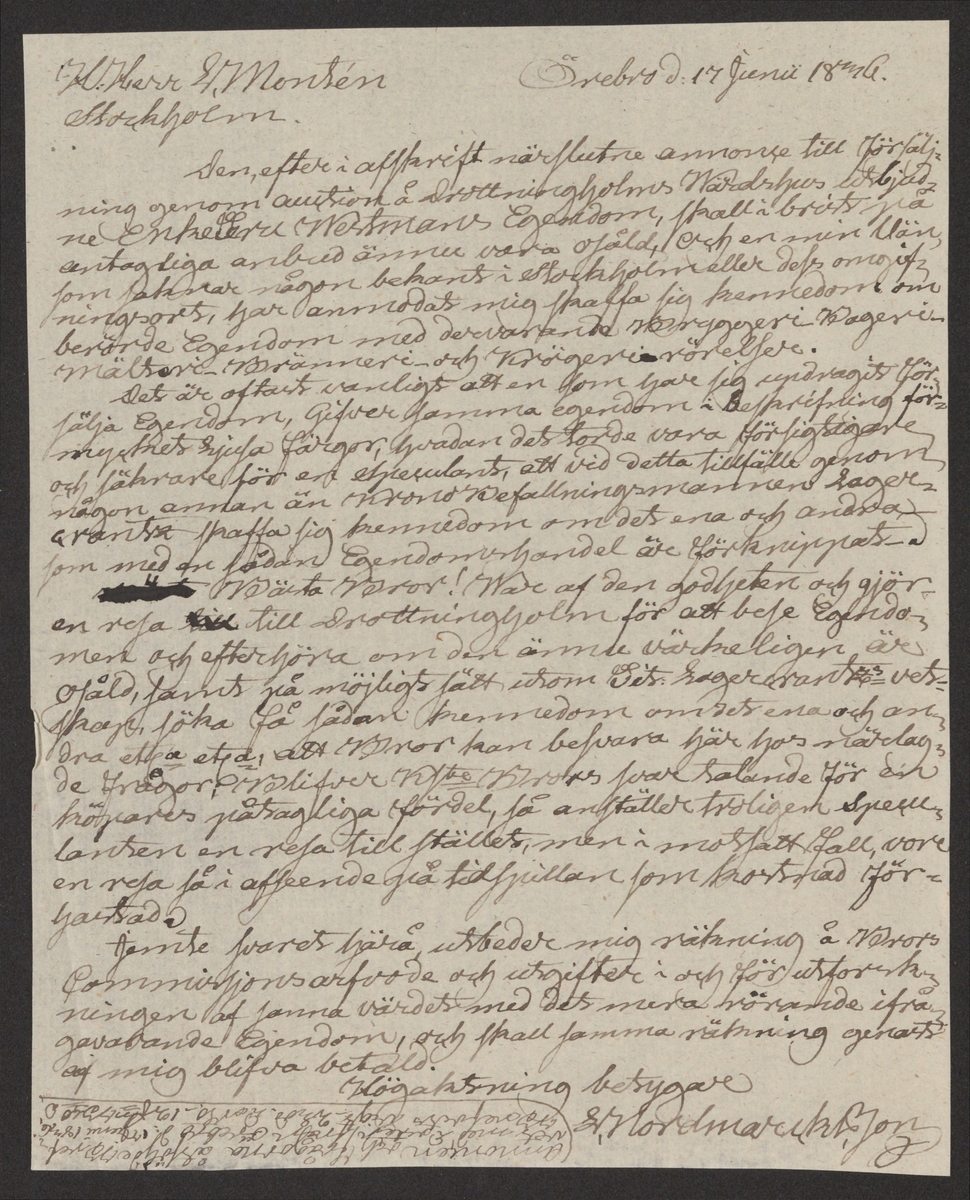 H. Herr L. Montén Örebro d: 17 Junii 1846.
Stockholm.
Den, efter i afskrift närslutne annonse till försälj-
ning genom auction å Drottningholms Wärdshus utbjud-
ne Enkefru Westmans Egendom, skall i brist på
antagliga anbud ännu vara osåld, och en min Vän,
som saknar någon bekant i Stockholm eller dess omgif-
ningsort, har anmodat mig skaffa sig kennedom om
berörde Egendom med dervarande Bryggeri- Bageri-
Mälteri- Bränneri- och Krögeri-rörelser.
Det är oftast vanligt att en som har sig updragit för-
sälja Egendom, Gifver samma egendom i Beskrifning för
mycket ljusa färgor, hvadan det torde vara försigtigare
och säkrare för en speculant, att vid detta tillfälle genom
någon annan än Krono Befallningsmannen Lager-
crantz skaffa sig kennedom om det ena och andra
som med en sådan Egendomshandel äro förknippat.
Bästa Bror! War af den godheten och gjör
en resa till Drottningholm för att bese Egendo-
men och efterhöra om den ännu värkeligen är
osåld, samt på möjligt sätt utom Tit: Lagercrantz's vet-
skap, söka få sådan kennedom om det ena och an-
dra etc, att Bror kan besvara här hos närlag-
de frågor; Blifver Bste Brors svar talande för en
köpares påtagliga fördel, så anställer troligen specu-
lanten en resa till stället, men i motsatt fall, vore
en resa så i afseende på tidspillan som kostnad för-
hastad.
Jemte svaret härå, utbeder mig räkning å Brors
Commissjonsarfvode och utgifter i och för utforsk-
ningen af sanna värdet med det mera rörande ifrå-
gavarande Egendom, och skall samma räkning genast
af mig blifva betald.
Högaktning betygar
L. Nordmarck